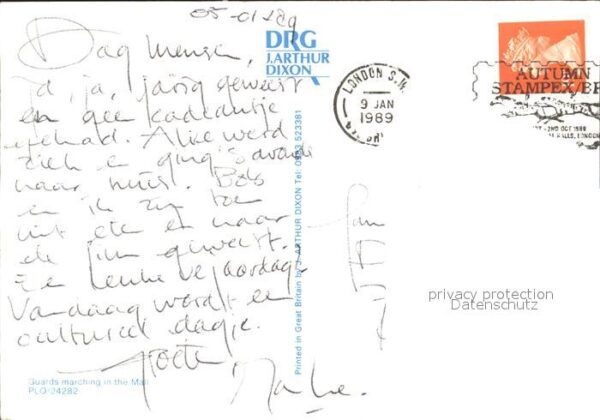 05-01-'89
Dag mensen,
ja, ja, jarig geweest
en gee kadeautje
gehad. Alie werd
ziek e ging 's avonds
naar huis. Bob
en ik zijn toe
uit ete e naar
de film geweest.
Ee leuke verjaardag.
Vandaag wordt ee
cultureel dagje.
Groete,
DRG
J.ARTHUR
DIXON
LONDON S.W.
9 JAN
1989
AUTUMN
STAMPEX/BR
Printed in Great Britain by J. ARTHUR DIXON Tel: 0983 523381
privacy protection
Datenschutz
Guards marching in the Mall
PLO 24282